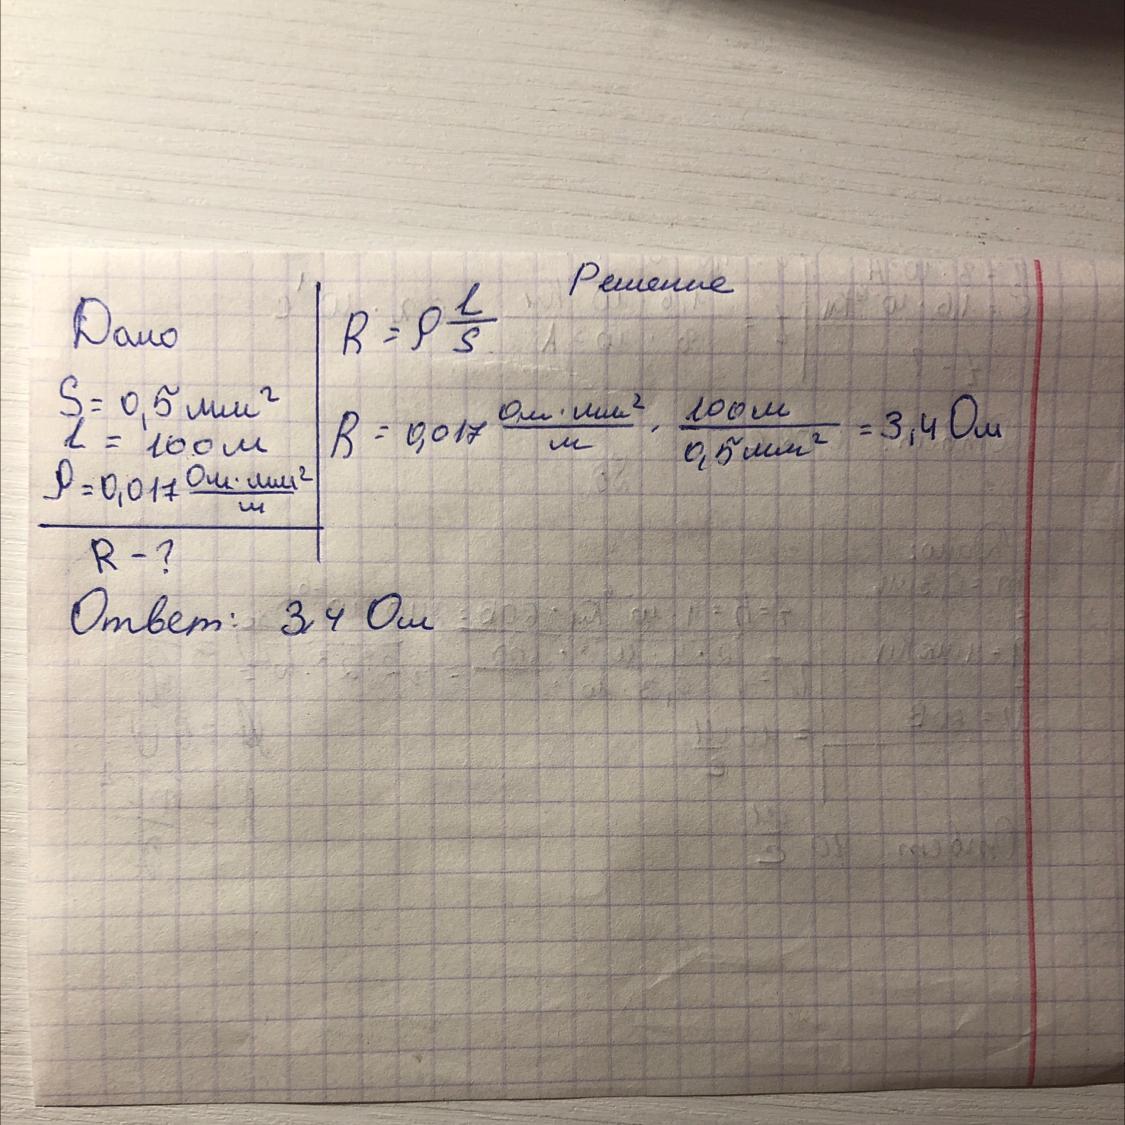 Решение
Дано
S = 0,5 мм²
l = 100 м
ρ = 0,017 Ом·мм²/м
R - ?
R = ρ l/S
R = 0,017 Ом·мм²/м · 100м/0,5мм² = 3,4 Ом
Ответ: 3,4 Ом